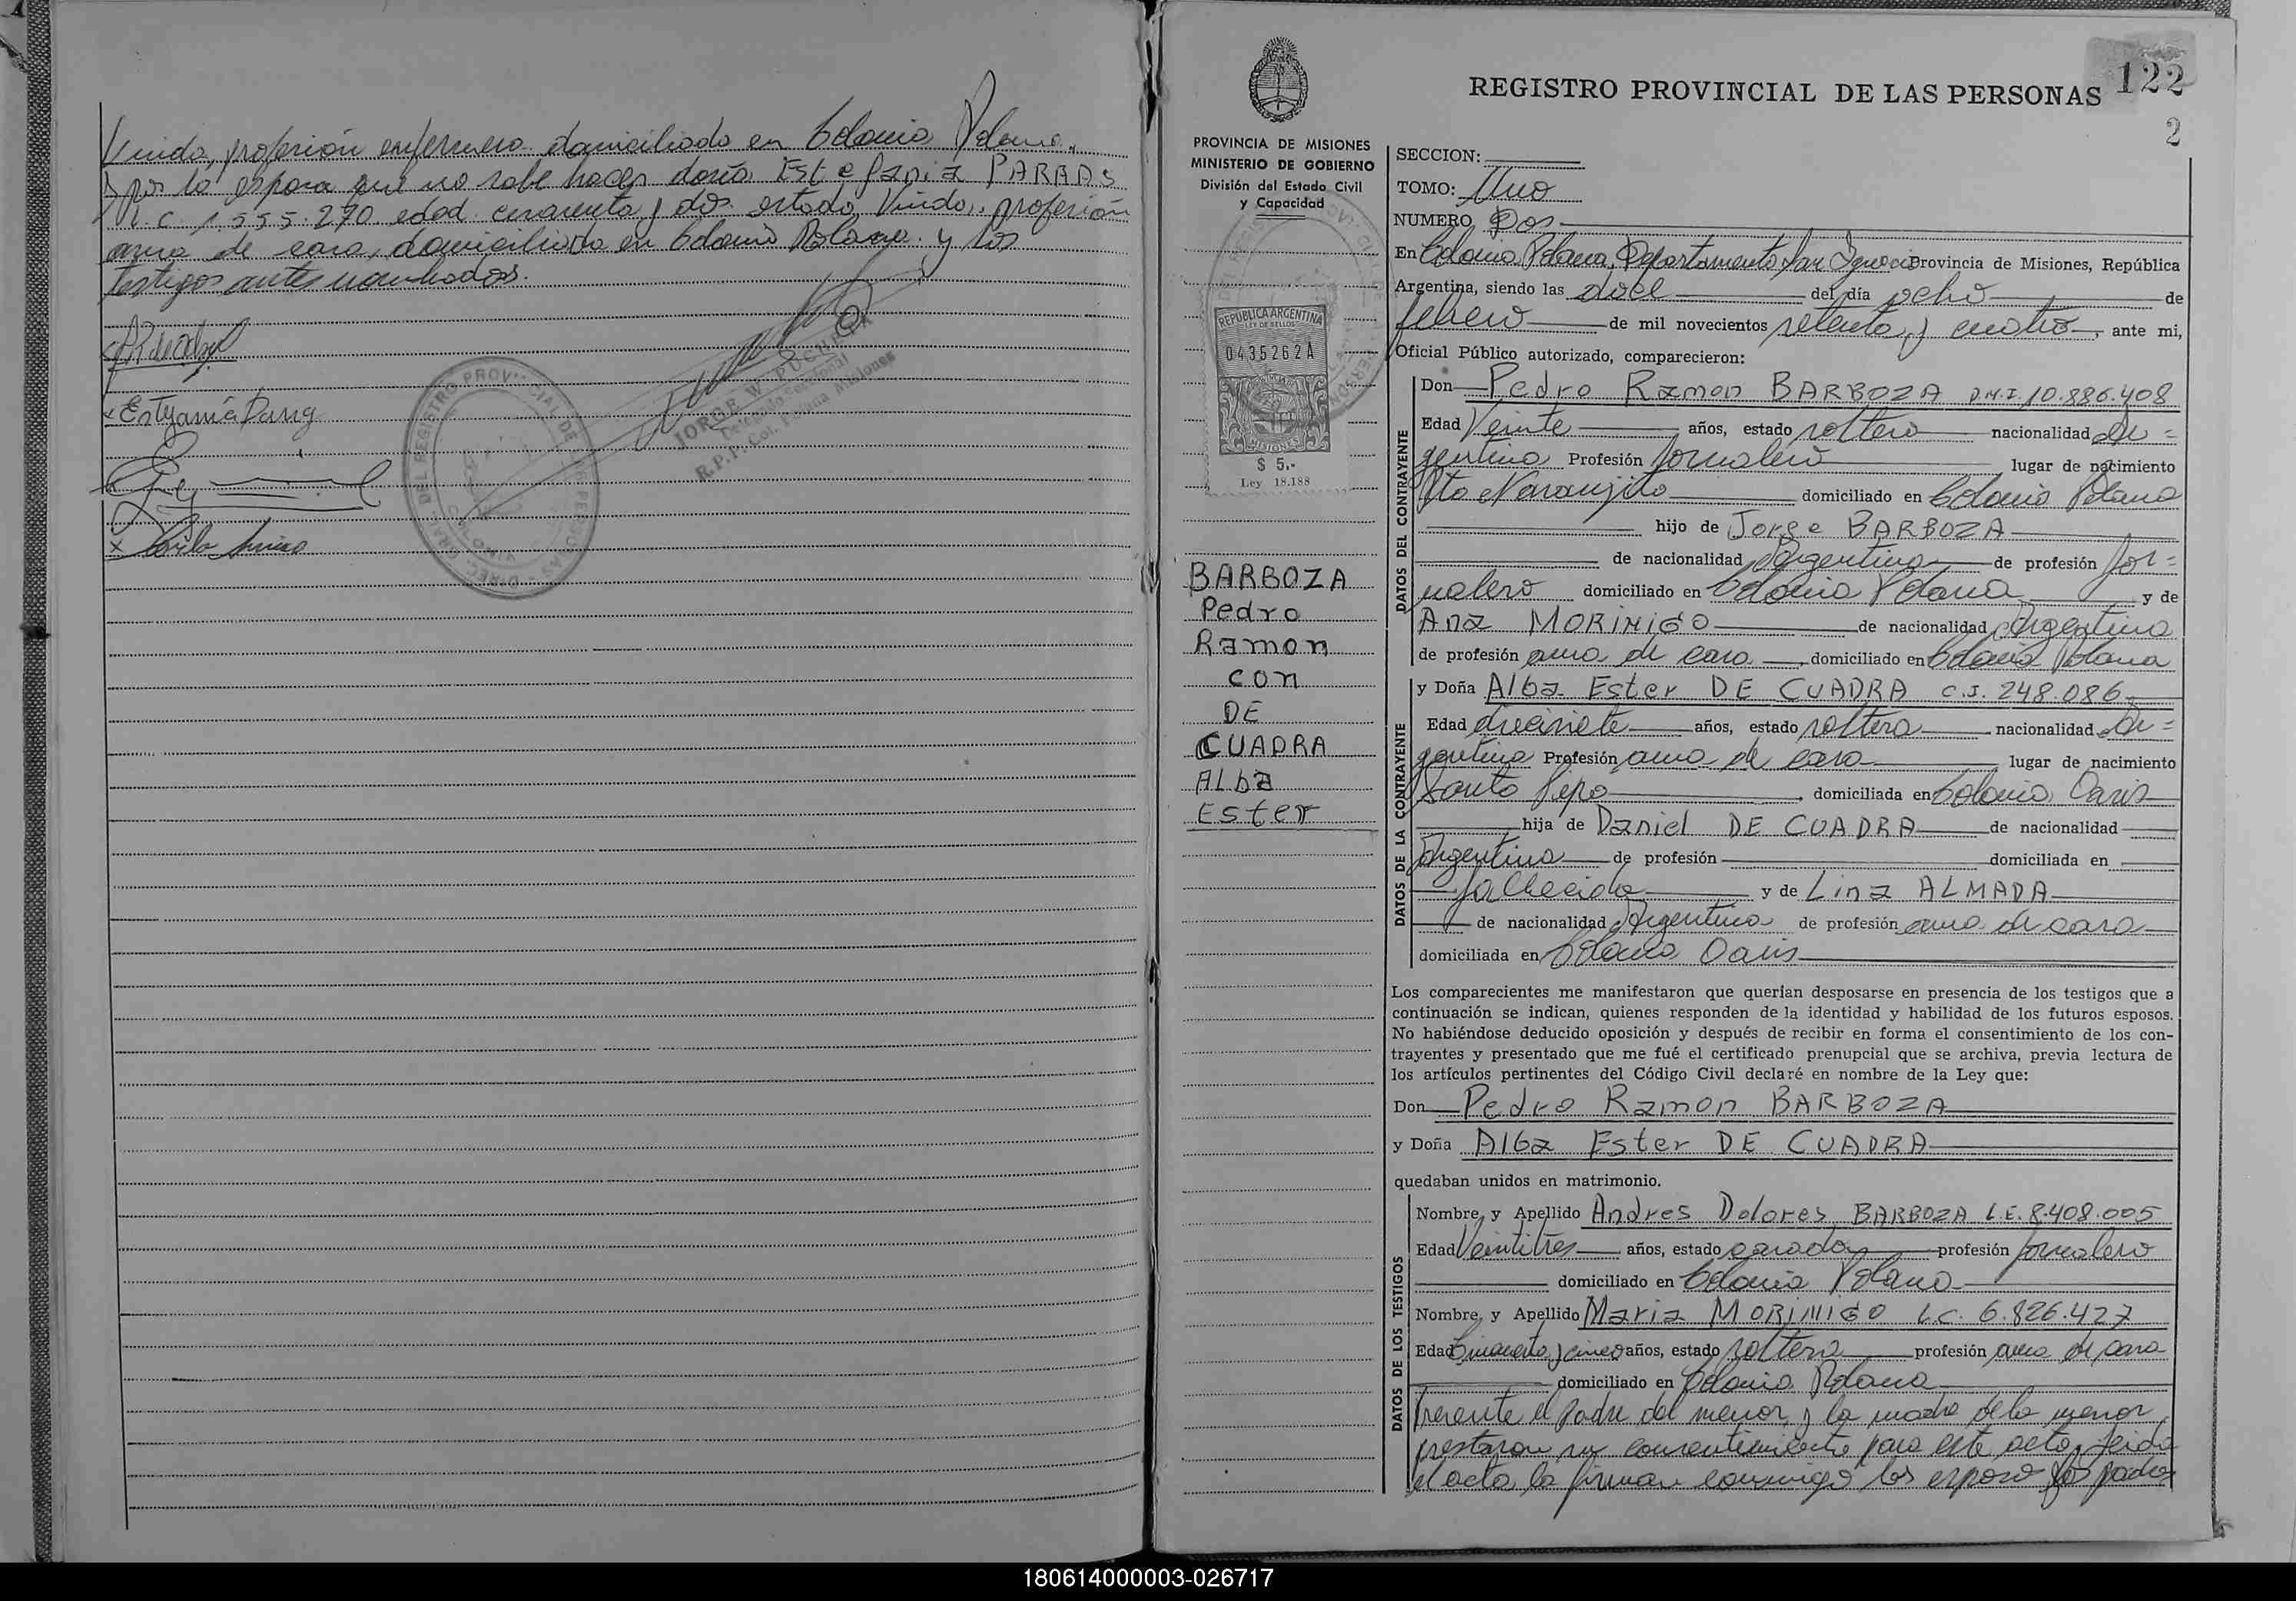 Viuda, profesión enfermero domiciliado en Colonia Polana.
y por la esposa que no sabe hacer doña Estefania PARRAS
L.C. 1.555.270 edad cincuenta y dos estado Viuda, profesión
ama de casa, domiciliada en Colonia Polana y los
testigos antes nombrados.
JORGE W.
Delegado Seccional
R.P.P. Col. Polana Misiones
122
REGISTRO PROVINCIAL DE LAS PERSONAS
2
PROVINCIA DE MISIONES
MINISTERIO DE GOBIERNO
División del Estado Civil
y Capacidad
REPUBLICA ARGENTINA
LEY DE SELLOS
0435262A
MISIONES
$ 5.-
Ley 18.188
BARBOZA
Pedro
Ramon
con
DE
CUADRA
ALba
Ester
SECCION:
TOMO: Uno
NUMERO Dos
En Colonia Polana, Departamento San Ignacio Provincia de Misiones, República
Argentina, siendo las doce del día ocho de
febrero de mil novecientos setenta y cuatro, ante mi,
Oficial Público autorizado, comparecieron:
DATOS DEL CONTRAYENTE
Don Pedro Ramon BARBOZA D.N.I 10.886.408
Edad Veinte años, estado soltero nacionalidad Ar=
gentina Profesión Jornalero lugar de nacimiento
Pto Naranjito domiciliado en Colonia Polana
hijo de Jorge BARBOZA
de nacionalidad Argentina de profesión Jor=
nalero domiciliado en Colonia Polana y de
Ana MORINIGO de nacionalidad Argentina
de profesión ama de casa, domiciliado en Colonia Polana
DATOS DE LA CONTRAYENTE
y Doña Alba Ester DE CUADRA C.I. 248.086
Edad diecisiete años, estado soltera nacionalidad Ar=
gentina Profesión ama de casa lugar de nacimiento
Santo Pipo domiciliada en Colonia Oasis
hija de Daniel DE CUADRA de nacionalidad
Argentina de profesión domiciliada en
fallecido y de Lina ALMADA
de nacionalidad Argentina de profesión ama de casa
domiciliada en Colonia Oasis
Los comparecientes me manifestaron que querían desposarse en presencia de los testigos que a
continuación se indican, quienes responden de la identidad y habilidad de los futuros esposos.
No habiéndose deducido oposición y después de recibir en forma el consentimiento de los con-
trayentes y presentado que me fué el certificado prenupcial que se archiva, previa lectura de
los artículos pertinentes del Código Civil declaré en nombre de la Ley que:
Don Pedro Ramon BARBOZA
y Doña Alba Ester DE CUADRA
quedaban unidos en matrimonio.
DATOS DE LOS TESTIGOS
Nombre y Apellido Andres Dolores BARBOZA L.E. 8.408.005
Edad Veintitres años, estado casado profesión jornalero
domiciliado en Colonia Polana
Nombre y Apellido Maria MORINIGO L.C. 6.826.427
Edad Cincuenta y cinco años, estado soltera profesión ama de casa
domiciliado en Colonia Polana
Presente el padre del menor y la madre de la menor
prestaron su consentimiento para este acto, leida
el acta, la firman conmigo los esposo los padres
180614000003-026717